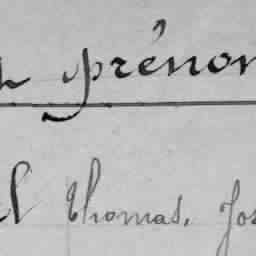 prénon
Thomas, Jos